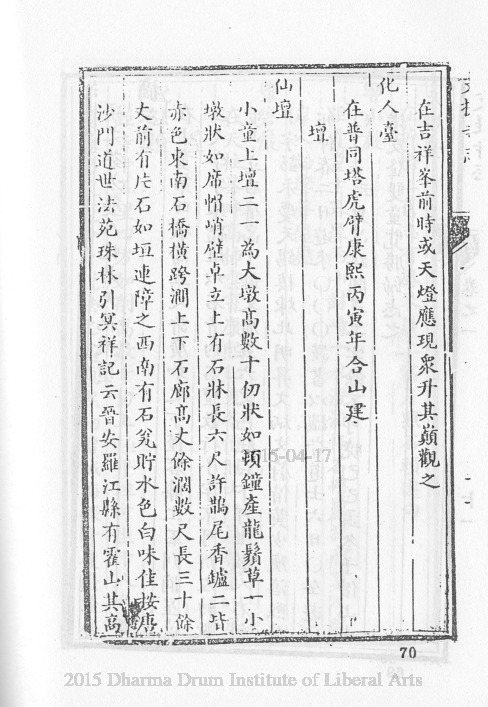 在吉祥峯前時或天燈應現衆升其巔觀之
化人臺
在普同塔虎臂康熙丙寅年合山建
壇
仙壇
小童上壇二一為大墩高數十仞狀如頓鐘產龍鬚草一小
墩狀如席帽峭壁卓立上有石牀長六尺許鵲尾香鑪二皆
赤色東南石橋橫跨澗上下石廊高丈餘濶數尺長三十餘
丈前有片石如垣連障之西南有石瓮貯水色白味佳按唐
沙門道世法苑珠林引冥祥記云晉安羅江縣有霍山其高
70
2015-04-17
2015 Dharma Drum Institute of Liberal Arts